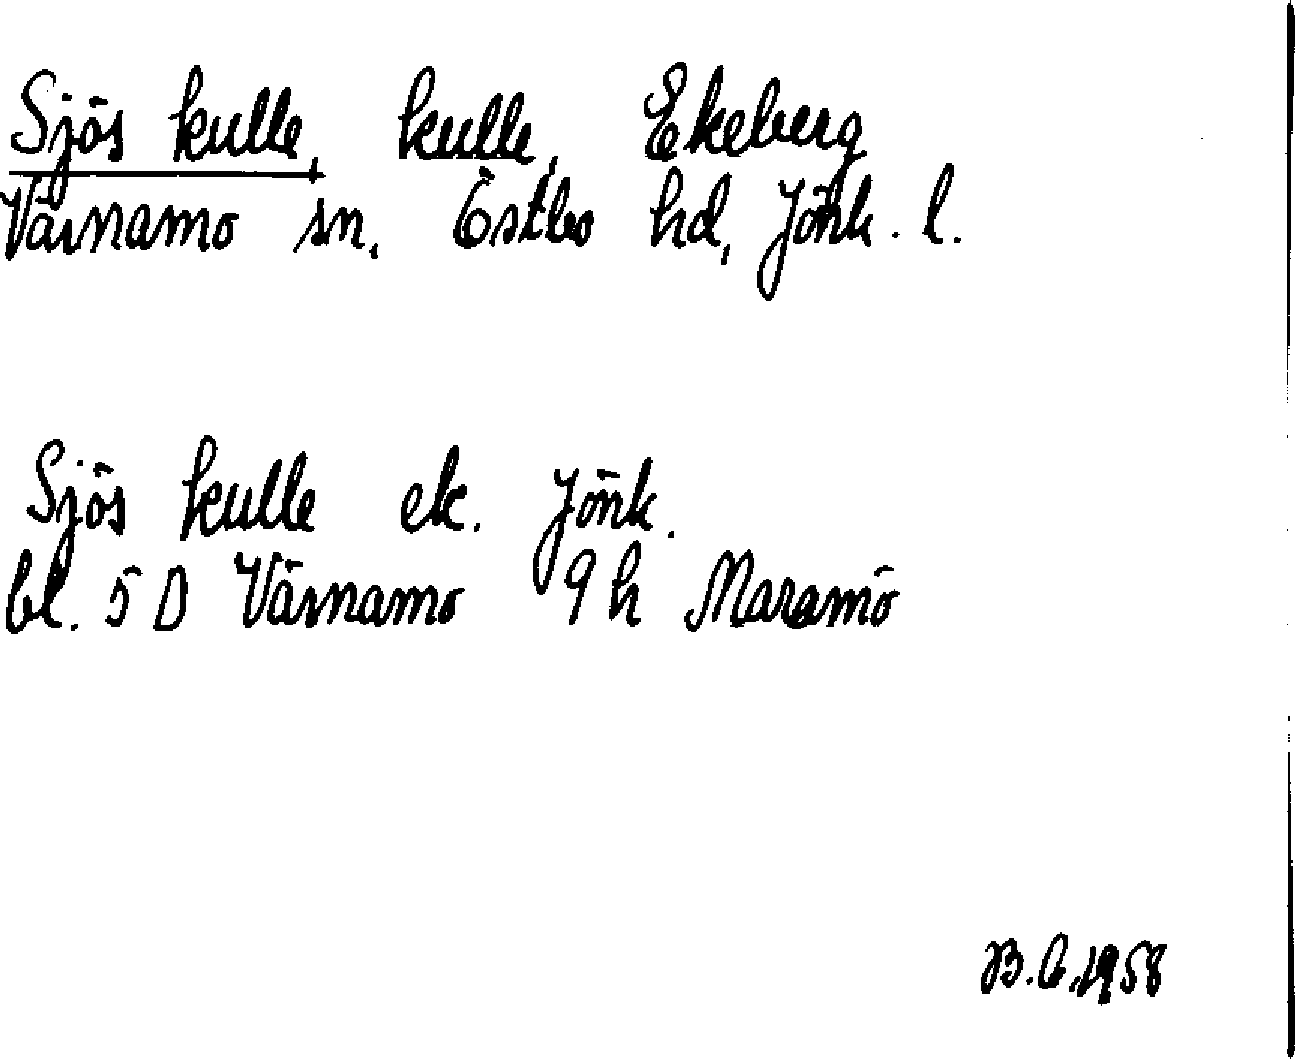 Sjös kulle, kulle, Ekeberg
Värnamo sn, Östbo hd, Jönk. l.
Sjös kulle ek. Jönk.
bl. 5 D Värnamo 9 h Maramö
1958